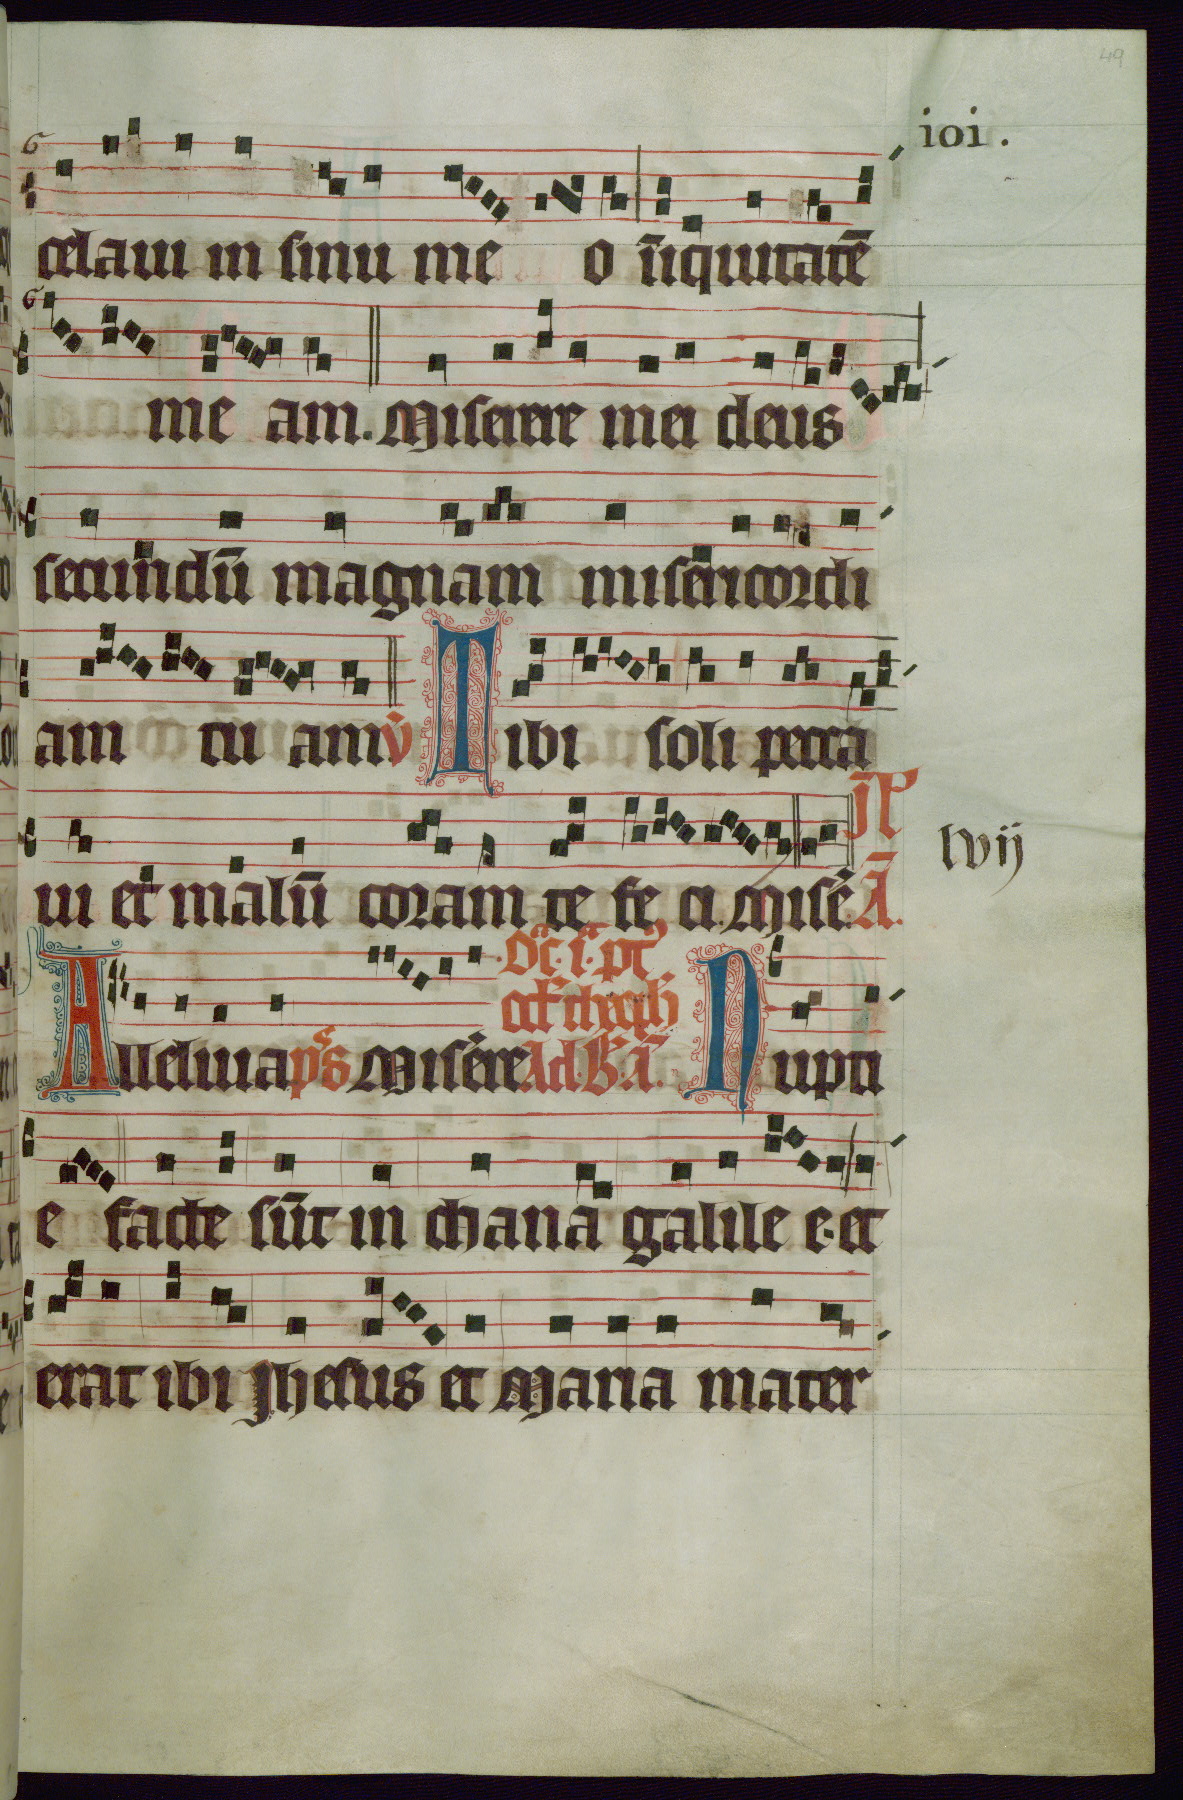 49
ioi.
celaui in sinu me o īiquitatē
me am. Miserere mei deus
secundū magnam misericordi
am tu am v̄ Tibi soli pecca
ui et malū coram te fe ci. Misē. Ā.
lvij
Alleluia ps Misēre Ad. B. ā. Nupti
e facte sūt in chana galilee. et
erat ibi Jhesus et Maria mater